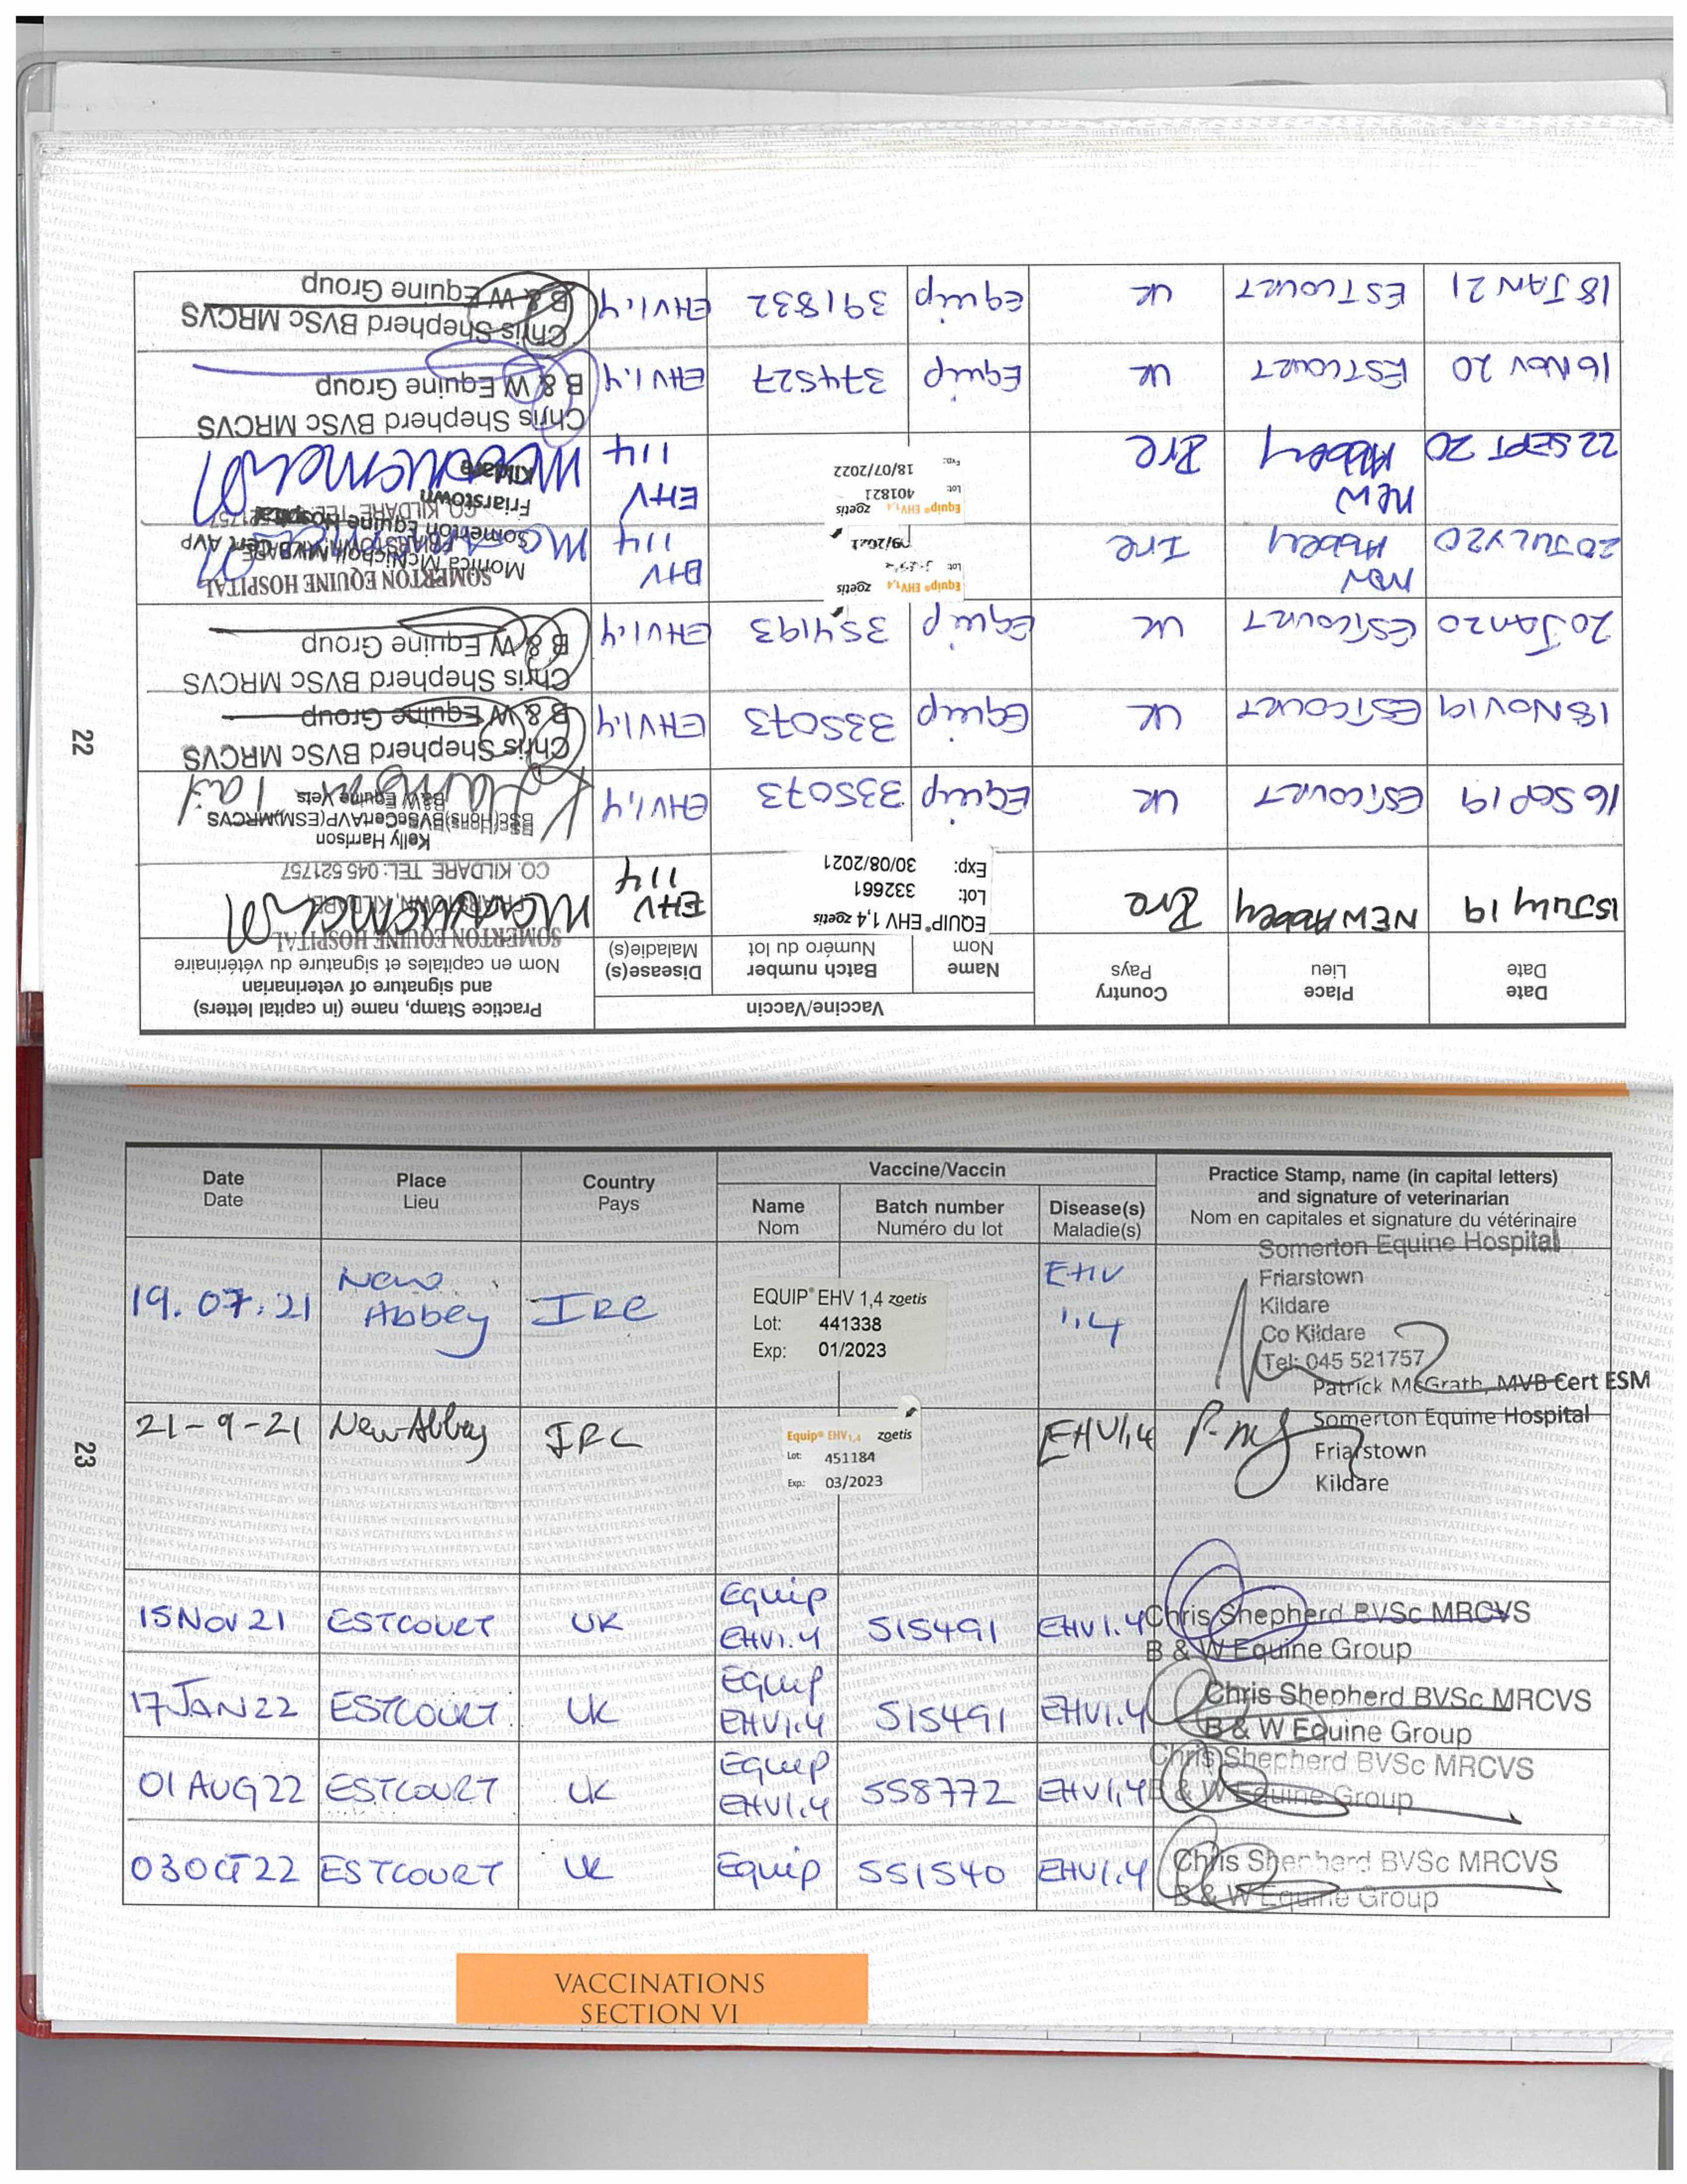 22
Date
Date
Place
Lieu
Country
Pays
Vaccine/Vaccin
Name
Nom
Batch number
Numéro du lot
Disease(s)
Maladie(s)
Practice Stamp, name (in capital letters)
and signature of veterinarian
Nom en capitales et signature du vétérinaire
15 July 19
NEW Abbey
Ire
EQUIP® EHV 1,4 zoetis
Lot: 332661
Exp: 30/08/2021
EHV
114
SOMERTON EQUINE HOSPITAL
FRIARSTOWN, KILDARE,
CO. KILDARE TEL: 045 521757
16 SEP 19
ESTCOURT
UK
Equip
335073
EHV1,4
Kelly Harrison
BSc(Hons)BVScCertAVP(ESM)MRCVS
B&W Equine Vets
18 NOV 19
ESTCOURT
UK
Equip
335073
EHV1.4
Chris Shepherd BVSc MRCVS
B & W Equine Group
20 Jan 20
ESTCOURT
UK
Equip
354193
EHV1.4
Chris Shepherd BVSc MRCVS
B & W Equine Group
20 JULY 20
Abbey
Ire
Equip® EHV1,4 zoetis
Lot:
114
SOMERTON EQUINE HOSPITAL
Monica McNicholl MVB Cert AVP
Somerton Equine Hospital
Friarstown
Kildare
22 SEPT 20
NEW
Abbey
Ire
Equip® EHV1,4 zoetis
Lot: 401821
Exp: 18/07/2022
EHV
114
16 NOV 20
ESTCOURT
UK
Equip
374527
EHV1.4
Chris Shepherd BVSc MRCVS
B & W Equine Group
18 JAN 21
ESTCOURT
UK
Equip
391832
EHV1.4
Chris Shepherd BVSc MRCVS
B & W Equine Group
23
Date
Date
Place
Lieu
Country
Pays
Vaccine/Vaccin
Name
Nom
Batch number
Numéro du lot
Disease(s)
Maladie(s)
Practice Stamp, name (in capital letters)
and signature of veterinarian
Nom en capitales et signature du vétérinaire
19.07.21
New
Abbey
IRE
EQUIP® EHV 1,4 zoetis
Lot: 441338
Exp: 01/2023
EHV
1,4
Somerton Equine Hospital
Friarstown
Kildare
Co Kildare
Tel: 045 521757
Patrick McGrath, MVB Cert ESM
21-9-21
New Abbey
IRE
Equip® EHV1,4 zoetis
Lot: 451184
Exp: 03/2023
EHV1,4
Somerton Equine Hospital
Friarstown
Kildare
15 NOV 21
ESTCOURT
UK
Equip
EHV1.4
515491
EHV1.4
Chris Shepherd BVSc MRCVS
B & W Equine Group
17 JAN 22
ESTCOURT
UK
Equip
EHV1.4
515491
EHV1.4
Chris Shepherd BVSc MRCVS
B & W Equine Group
01 AUG 22
ESTCOURT
UK
Equip
EHV1.4
558772
EHV1,4
Chris Shepherd BVSc MRCVS
B & W Equine Group
03 OCT 22
ESTCOURT
UK
Equip
551540
EHV1.4
Chris Shepherd BVSc MRCVS
B & W Equine Group
VACCINATIONS
SECTION VI